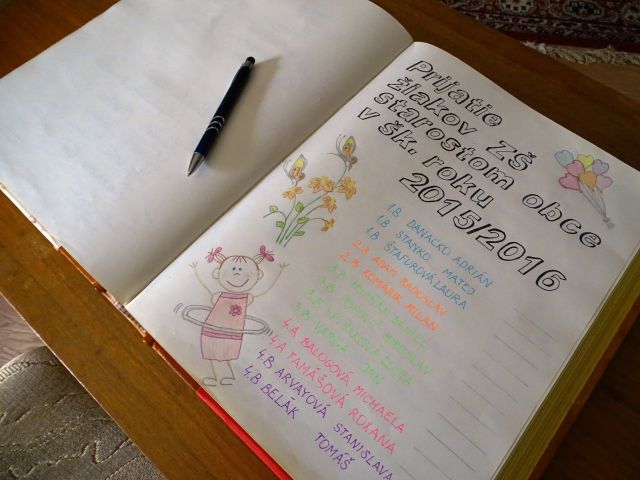 Prijatie
žiakov ZŠ
starostom obce
v šk. roku
2015/2016
1.B DANACKO ADRIÁN
1.B STANKO MATEJ
1.B ŠTAFUROVÁ LAURA
2.A ADAM RADOSLAV
2.A KOMÁRIK MILAN
4.A BALOGOVÁ MICHAELA
4.A TAMÁŠOVÁ ROXANA
4.B ARVAYOVÁ STANISLAVA
4.B BELÁK TOMÁŠ